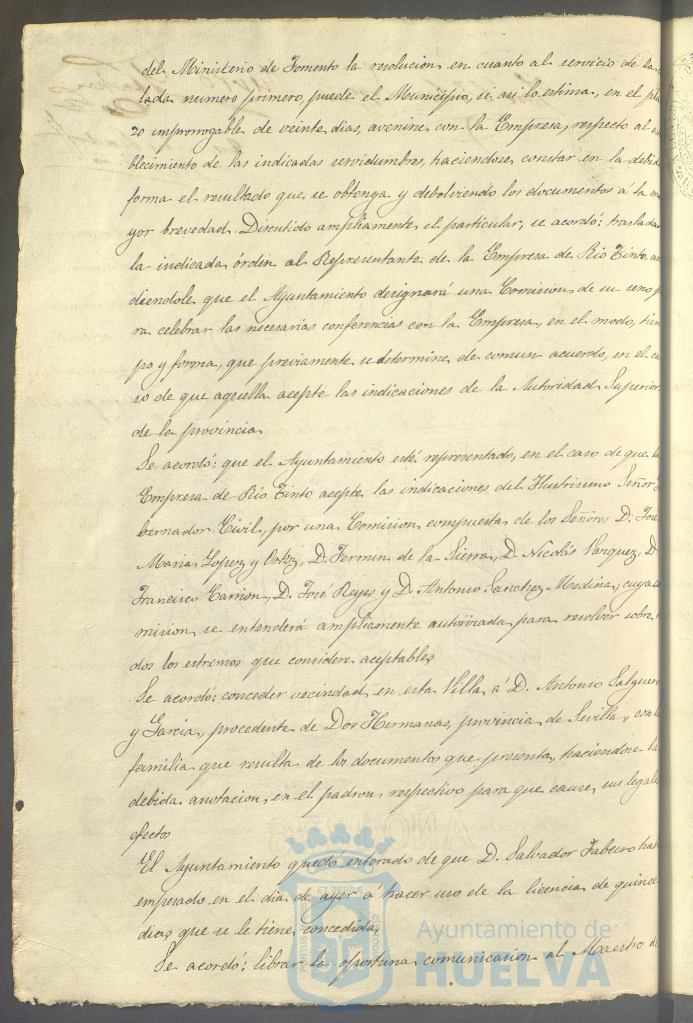 del Ministerio de Fomento la resolucion en cuanto al servicio de la
lada numero primero, puede el Municipio, si asi lo estima, en el pla
zo improrrogable de veinte dias, avenirse con la Empresa, respecto al
blecimiento de las indicadas servidumbres, haciendose constar en la debida
forma el resultado que se obtenga y debolviendo los documentos á la ma
yor brevedad. Discutido ampliamente el particular, se acordó: trasladar
la indicada órden al Representante de la Empresa de Rio Tinto, aña
diendole que el Ayuntamiento designará una Comision de su seno p
ra celebrar las necesarias conferencias con la Empresa, en el modo, tiem
po y forma, que previamente se determine de comun acuerdo, en el ca
so de que aquella acepte las indicaciones de la Autoridad Superior
de la provincia
Se acordó: que el Ayuntamiento esté representado, en el caso de que la
Empresa de Rio Tinto acepte las indicaciones del Ilustrisimo Señor
bernador Civil, por una Comision compuesta de los Señores D. José
Maria Lopez y Ortiz, D. Fermin de la Sierra, D. Nicolás Vazquez, D.
Francisco Carrion, D. José Reyes y D. Antonio Sanchez Medina, cuya
mision se entenderá ampliamente autorizada para resolver sobre
dos los estremos que considere aceptables
Se acordó: conceder vecindad en esta Villa á D. Antonio Salguero
y Garcia, procedente de Dos Hermanas, provincia de Sevilla y con la
familia que resulta de los documentos que presenta, haciendose la
debida anotacion en el padron respectivo para que cause sus legales
efectos
El Ayuntamiento quedó enterado de que D. Salvador Tabeiro hab
empesado en el dia de ayer á hacer uso de la licencia de quince
dias que se le tiene concedida.
Se acordó: librar la oportuna comunicacion al Maestro de
Ayuntamiento de
HUELVA